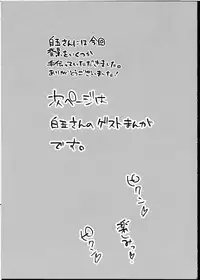 白玉さんには今回
背景をいくつか
お伝いしていただきました。
ありがとうございました!
次ページは
白玉さんのゲストまんが
です。
ピクン♡
楽しみっ♡
ピクン♡